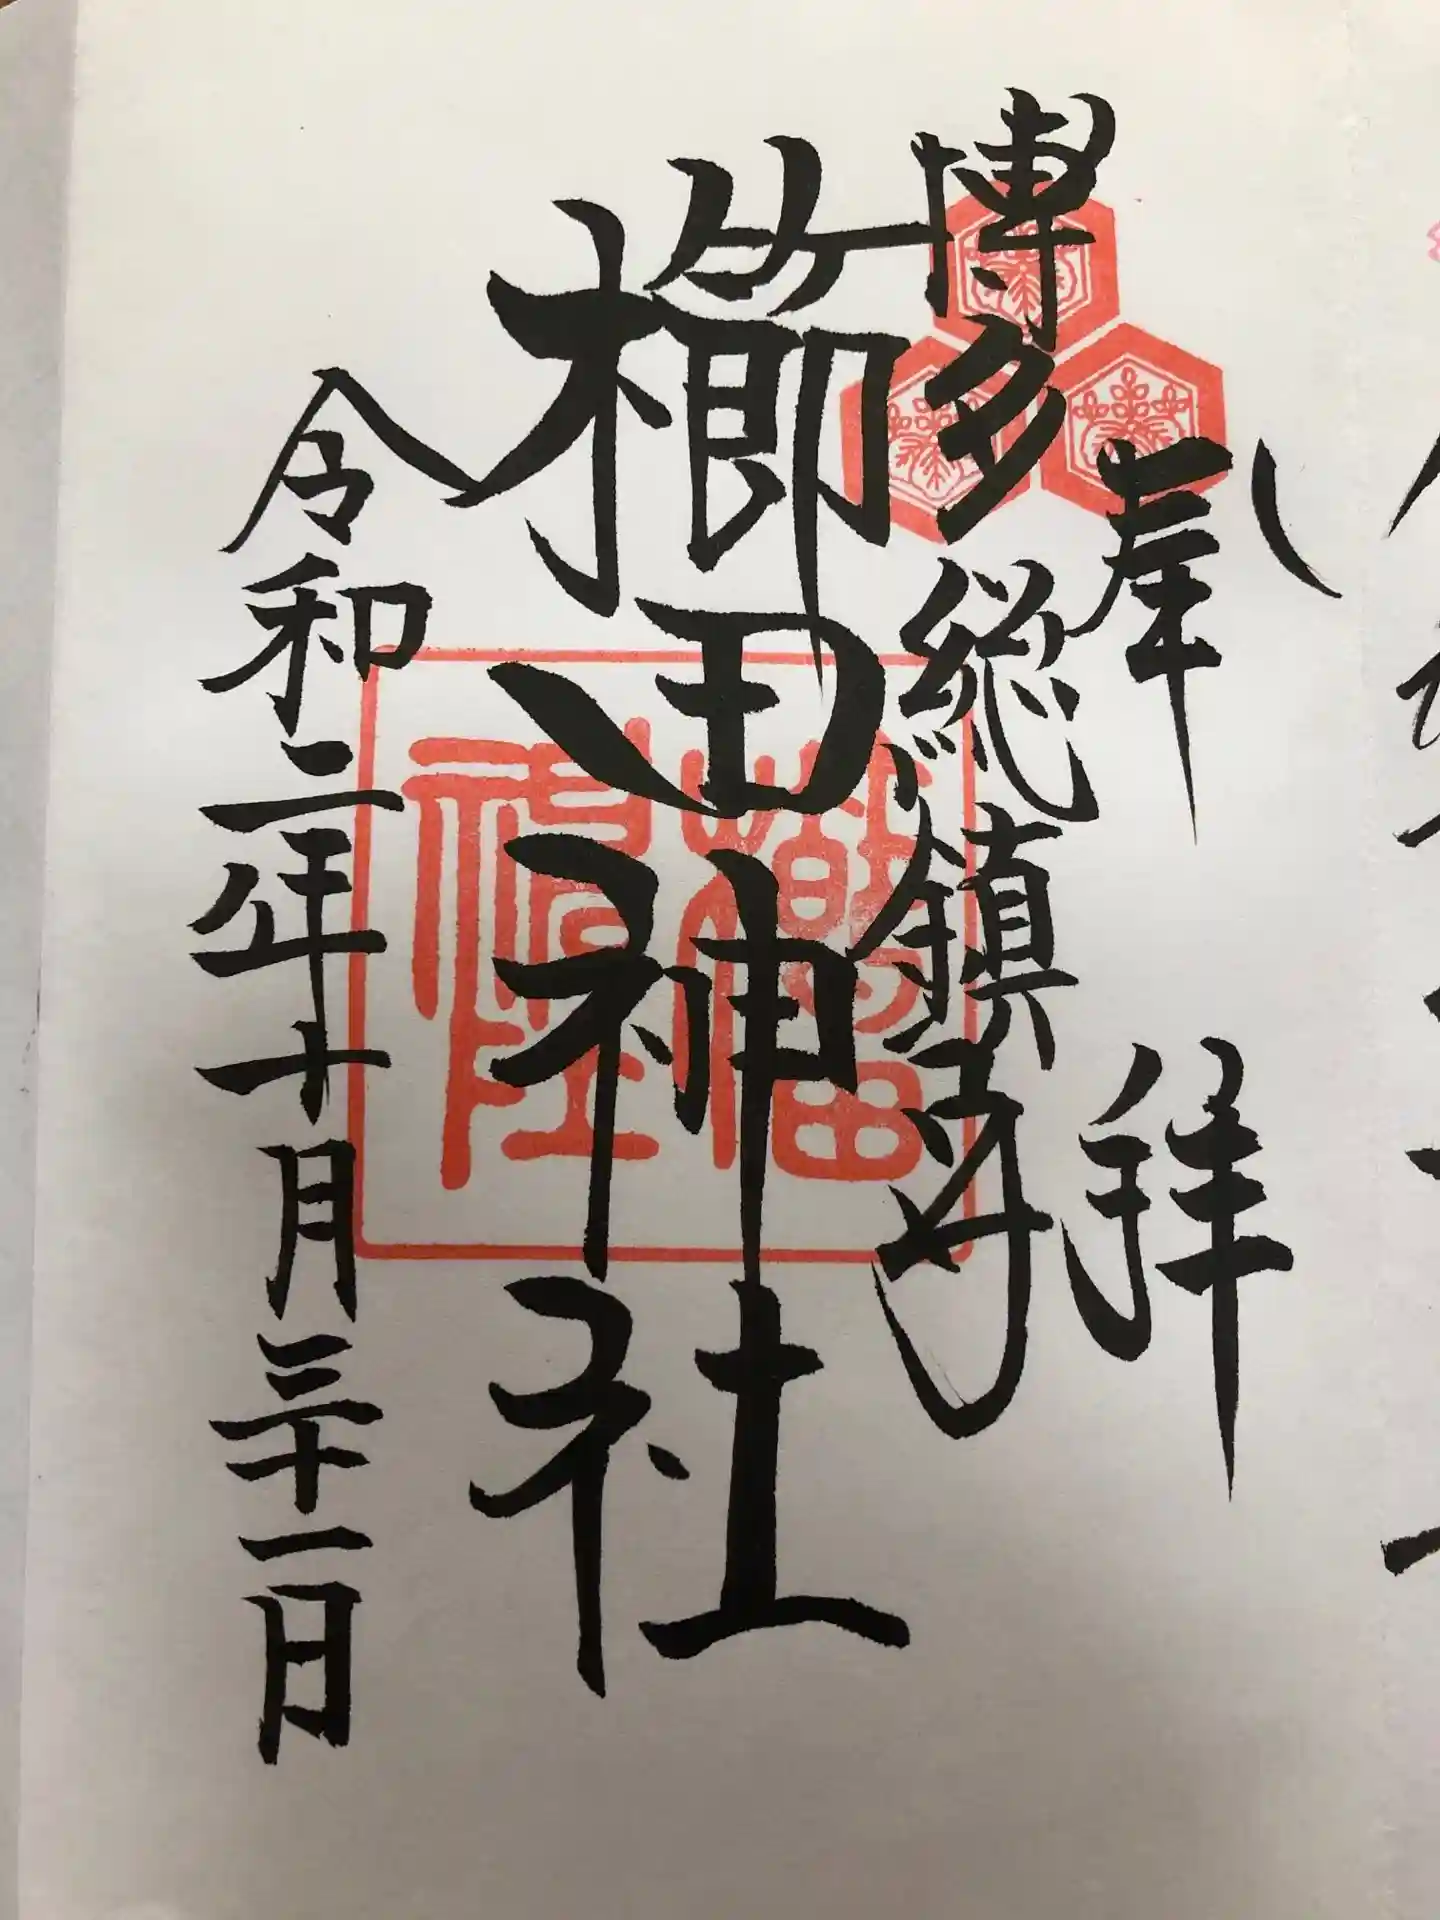 奉拝
博多総鎮守
櫛田神社
令和二年十月三十一日